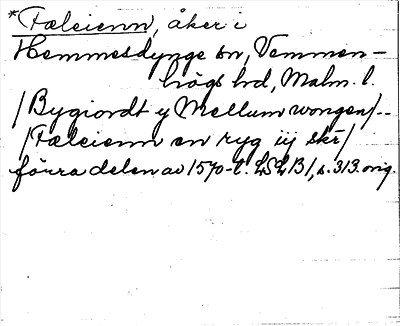 *Fæleienn, åker i
Hemmesdynge sn, Vemmen-
högs hd, Malm. l.
/Bygiordt y Mellum wongen/--
/Fæleienn en ryg iij skr/
förra delen av 1570-t. LSLB1, s. 313. orig.